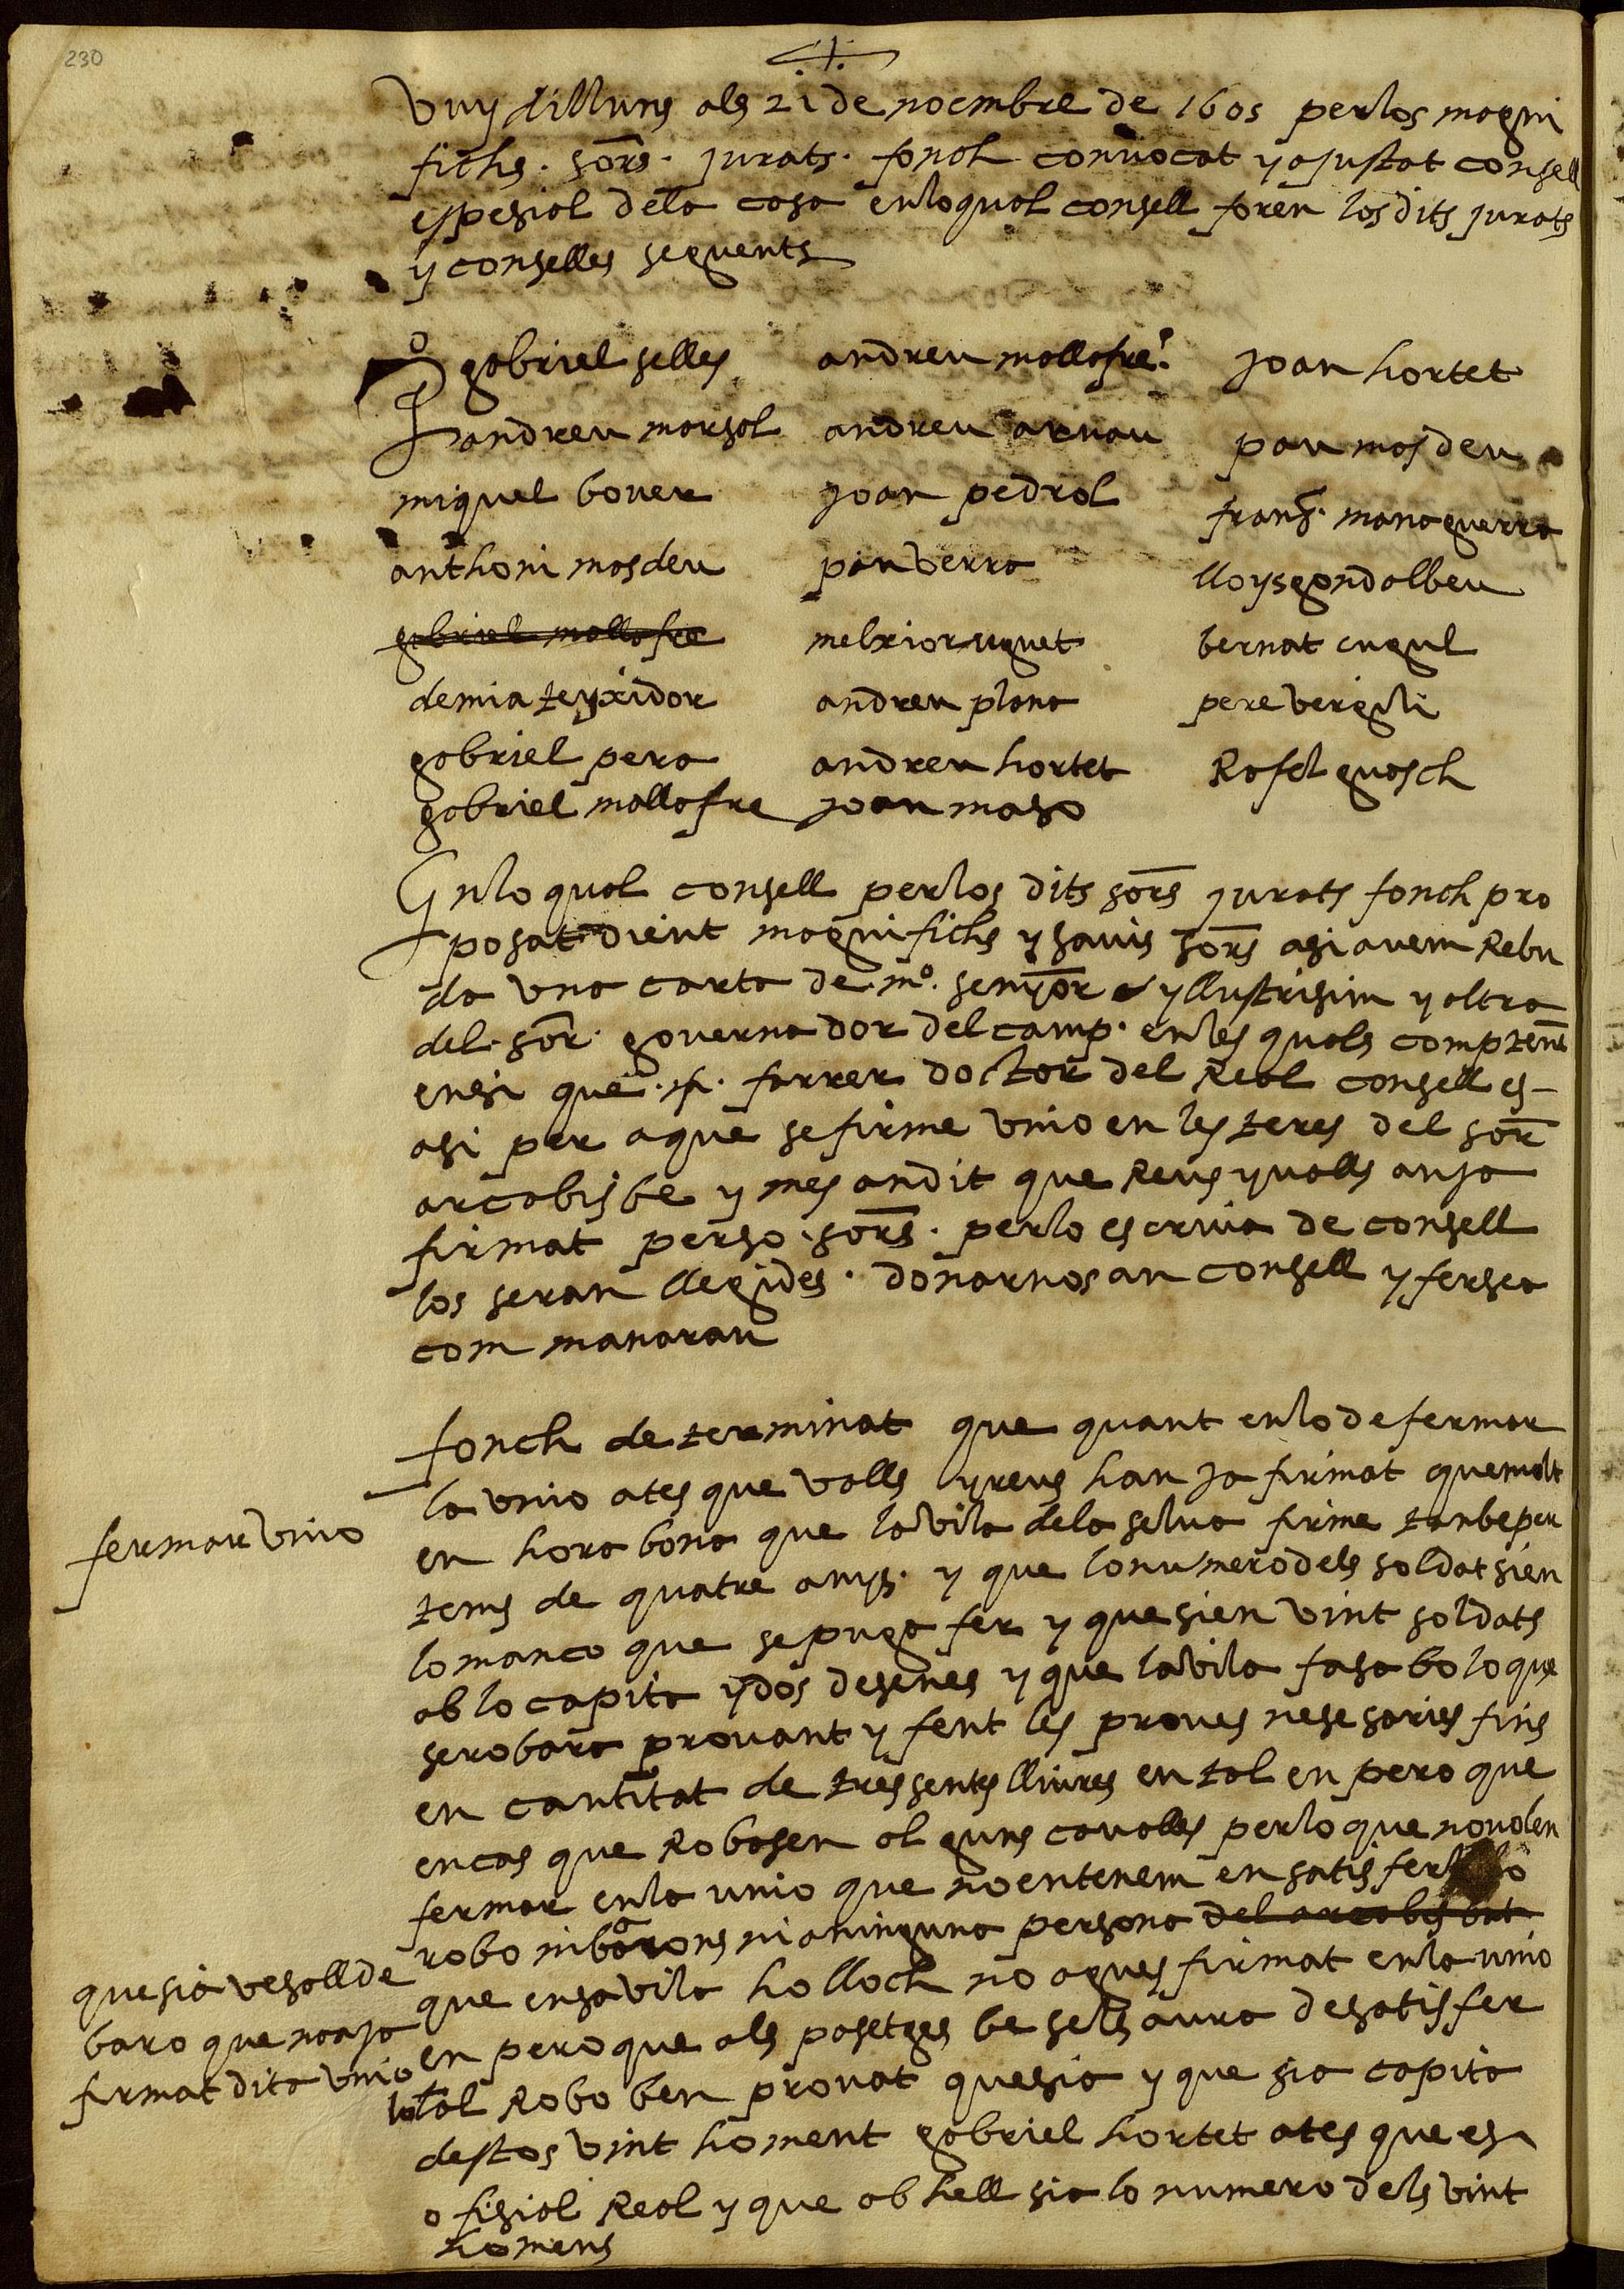 230
vuy dilluns als 21 de noembre de 1605 perlos magni
fichs. sors. jurats. fonch convocat y ajustat consell
espesial dela casa enloqual consell foren los dits jurats
y conselles seguents
gabriel selles
andreu marsal
miquel bover
anthoni masdeu
gabriel mallofre
demia teyxidor
gabriel pera
gabriel mallofre
andreu mallofre
andreu arnau
joan pedrol
pau verra
melxior uguet
andreu plana
andreu hortet
joan maso
joan hortet
pau masdeu
frans. managuerra
lloys gondalbeu
bernat cugul
pere vergili
Rafel guasch
Enlo qual consell perlos dits sors jurats fonch pro
posat dient magnifichs y savis sors asi avem Rebu
da una carta de mo. senyor yllustrisim y altra
del. sor. governador del camp. enles quals comptene
ensi que .m. farrer doctor del Real consell es
asi per aque se firme unio en les teres del sor
arcabisbe y mes an dit que Reus y valls an ja
firmat perso. sors. perlo escriva de consell
los seran llegides. donarnos an consell y fersea
com manaran
fonch determinat que quant enlo de fermar
la unio ates que valls y reus han ja firmat que molt
en hora bona que la vila dela selva firme tanbe per
tems de quatre anys. y que lo numero dels soldat sien
lo manco que se puga fer y que sien vint soldats
ab lo capita y dos desenes y que la vila fasa bo lo que
se robara provant y fent les proves nesesaries fins
en cantitat de tressentes lliures en tal en pero que
encas que Robasen alguns cavalles perlo que no volen
fermar enla unio que no entenem en satisfer lo
robo ni barons ni a ninguna persona del arcabisbat
que ensa vila ho lloch no agues firmat enla unio
en pero que als pasetges be sels aura de satisfer
lo tal Robo ben provat que sia y que sia capita
destos vint homent gabriel hortet ates que es
ofisial Real y que ab hell sia lo numero dels vint
homens
fermar unio
que sia vesall de
baro que no aja
firmat dita unio